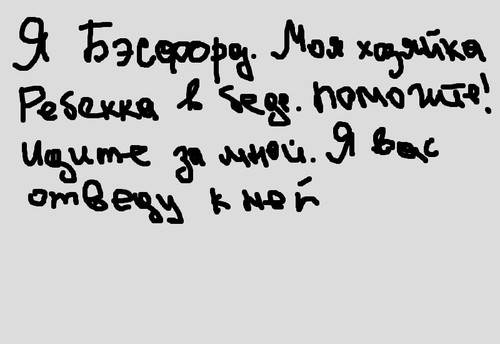 Я Бэсфорд. Моя хозяйка
Ребекка в беде. помогите!
идите за мной. Я вас
отведу к ней